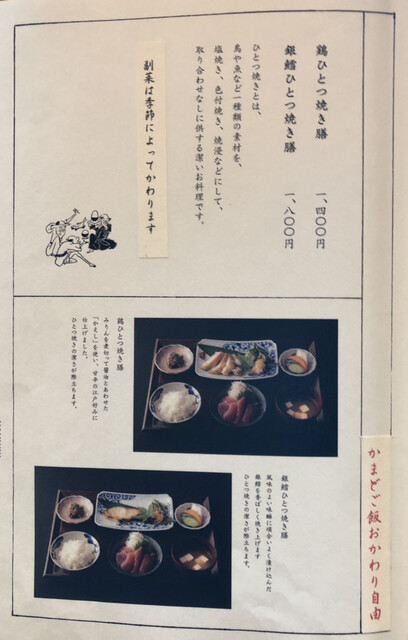 鶏ひとつ焼き膳　一、四〇〇円
銀鱈ひとつ焼き膳　一、八〇〇円
ひとつ焼きとは、
鳥や魚など一種類の素材を、
塩焼き、色付焼き、焼浸などにして、
取り合わせなしに供する潔いお料理です。
副菜は季節によってかわります
鶏ひとつ焼き膳
みりんを煮切って醤油とあわせた
「かえし」を使い、甘辛の江戸好みに
仕上げました。
ひとつ焼きの潔さが際立ちます。
銀鱈ひとつ焼き膳
風味のよい味噌に頃合いよく漬け込んだ
銀鱈を香ばしく焼き上げます
ひとつ焼きの潔さが際立ちます。
かまどご飯おかわり自由